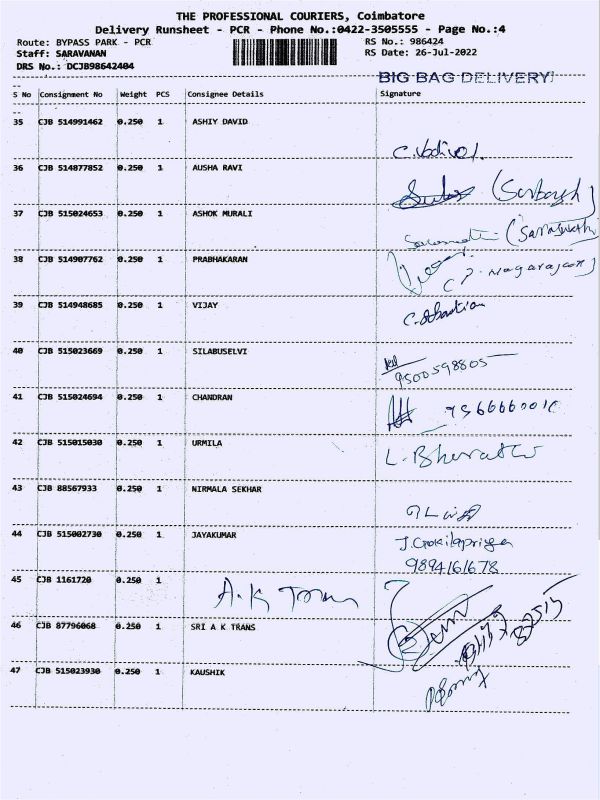 THE PROFESSIONAL COURIERS, Coimbatore
Delivery Runsheet - PCR - Phone No.:0422-3505555 - Page No.:4
Route: BYPASS PARK - PCR RS No.: 986424
Staff: SARAVANAN RS Date: 26-Jul-2022
DRS No.: DCJB98642404
BIG BAG DELIVERY
S No Consignment No Weight PCS Consignee Details Signature
35 CJB 514991462 0.250 1 ASHIY DAVID
36 CJB 514877852 0.250 1 AUSHA RAVI
37 CJB 515024653 0.250 1 ASHOK MURALI
38 CJB 514907762 0.250 1 PRABHAKARAN
(P. Nagarajan)
39 CJB 514948685 0.250 1 VIJAY
40 CJB 515023669 0.250 1 SILABUSELVI
9500598805
41 CJB 515024694 0.250 1 CHANDRAN
42 CJB 515015030 0.250 1 URMILA
43 CJB 88567933 0.250 1 NIRMALA SEKHAR
44 CJB 515002730 0.250 1 JAYAKUMAR J.Gokilapriya
9894161678
45 CJB 1161720 0.250 1 A.K Trans
46 CJB 87796068 0.250 1 SRI A K TRANS
47 CJB 515023930 0.250 1 KAUSHIK